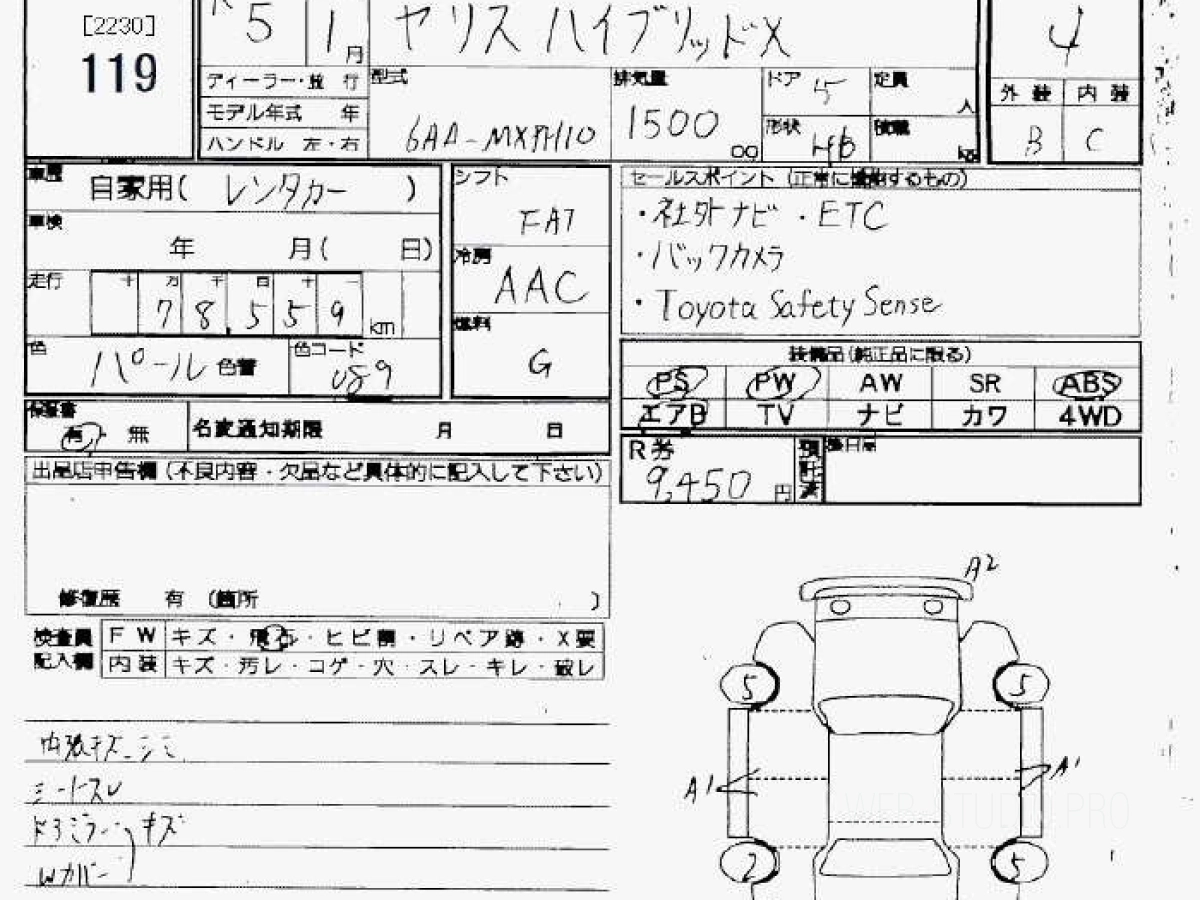 [2230]
119
R 5 1 月
ヤリス ハイブリッドX
4
ディーラー・並 行
モデル年式 年
ハンドル 左・右
型式
6AA-MXPH10
排気量
1500
cc
ドア 5
形状 HB
定員 人
積載 kg
外 装 内 装
B C
車歴
自家用( レンタカー )
車検
年 月( 日)
走行
十 万 千 百 十 一
7 8. 5 5 9 km
色
パール 色替
色コード
089
シフト
FAT
冷房
AAC
燃料
G
セールスポイント (正常に機能するもの)
・社外ナビ ・ETC
・バックカメラ
・Toyota Safety Sense
装備品(純正品に限る)
PS PW AW SR ABS
エアB TV ナビ カワ 4WD
保証書
有・無
名変通知期限 月 日
R券
9,450 円
預託済
後日品
出品店申告欄(不良内容・欠品など具体的に記入して下さい)
修復歴 有 (箇所 )
検査員記入欄
FW キズ・飛石・ヒビ割・リペア跡・X要
内装 キズ・汚レ・コゲ・穴・スレ・キレ・破レ
内張キズ.シミ.
シートスレ
ドアミラー キズ
Wカバー
A2
5 5
A1 A1
2 5
WEB STUDIO PRO